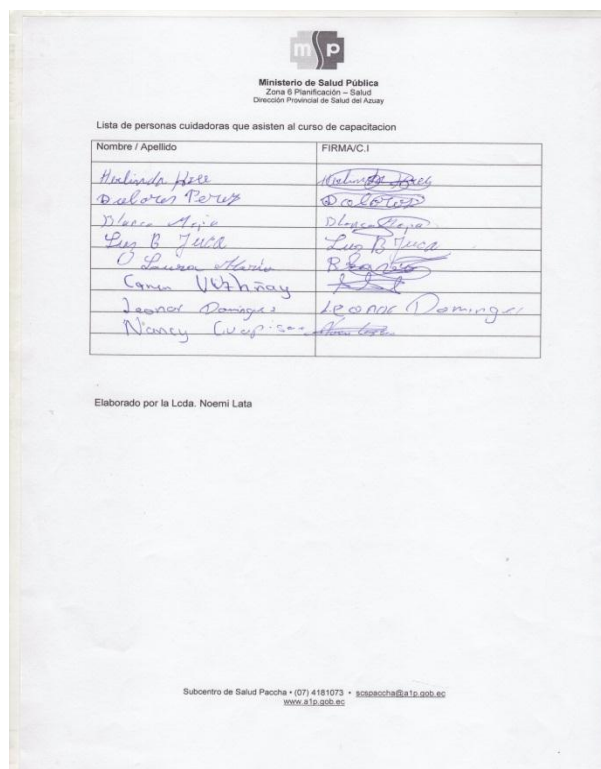 msp
Ministerio de Salud Pública
Zona 6 Planificación – Salud
Dirección Provincial de Salud del Azuay
Lista de personas cuidadoras que asisten al curso de capacitacion
Nombre / Apellido FIRMA/C.I
Herlinda
Dolores Perez Dolores
Blanca Mejia Blanca Mejia
Luz B Juca Luz B Juca
Laura Maria
Carmen
Leonor Domingues Leonor Domingue
Nancy
Elaborado por la Lcda. Noemi Lata
Subcentro de Salud Paccha • (07) 4181073 • scspaccha@a1p.gob.ec
www.a1p.gob.ec